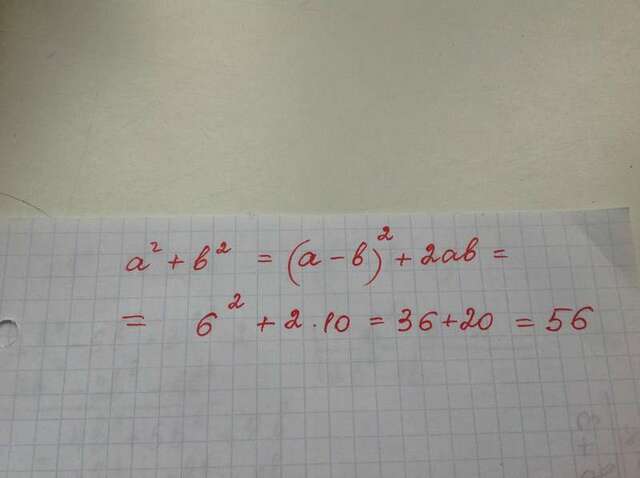 a² + b² = (a - b)² + 2ab =
= 6² + 2 · 10 = 36 + 20 = 56